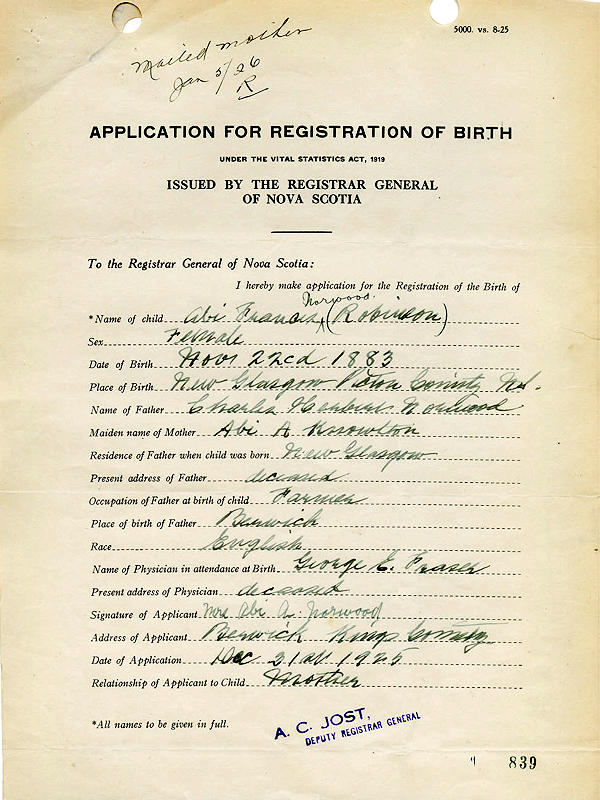 5000. vs. 8-25
Mailed mother
Jan 5/26
R
APPLICATION FOR REGISTRATION OF BIRTH
UNDER THE VITAL STATISTICS ACT, 1919
ISSUED BY THE REGISTRAR GENERAL
OF NOVA SCOTIA
To the Registrar General of Nova Scotia:
I hereby make application for the Registration of the Birth of
Norwood
*Name of child Abi Francis (Robinson)
Sex Female
Date of Birth Novr 22cd 1883
Place of Birth New Glasgow Pictou County N.S.
Name of Father Charles Norwood
Maiden name of Mother Abi A Knowlton
Residence of Father when child was born New Glasgow
Present address of Father deceased
Occupation of Father at birth of child Farmer
Place of birth of Father Berwick
Race English
Name of Physician in attendance at Birth George E. Fraser
Present address of Physician deceased
Signature of Applicant Mrs Abi A. Norwood
Address of Applicant Berwick Kings County
Date of Application Dec 31 1925
Relationship of Applicant to Child Mother
*All names to be given in full.
A. C. JOST,
DEPUTY REGISTRAR GENERAL
839